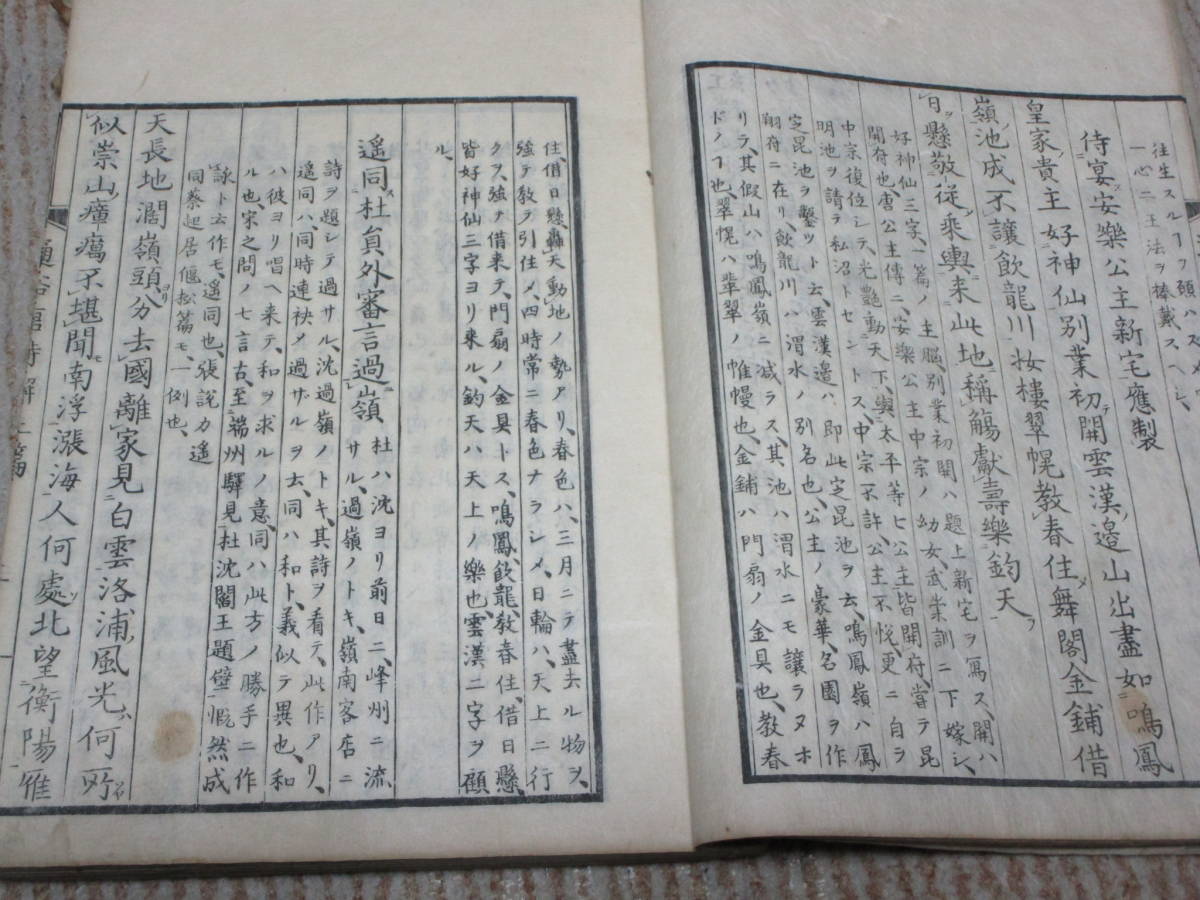 往生スルヿヲ願ハスメ、
一心ニ王法ヲ棒戴スヘシ、
侍宴安樂公主新宅應製
皇家貴主好神仙別業初開雲漢邉山出盡如鳴鳳
嶺池成不讓飲龍川妝樓翠幌教春住舞閣金鋪借
日懸敬從乘輿来此地稱觴獻壽樂鈞天
好神仙三字、一篇ノ主腦、別業初開ハ題上新宅ヲ寫ス、開ハ
開府也、唐公主傳ニ、安樂公主中宗ノ幼女、武崇訓ニ下嫁シ、
中宗復位シテ、光艶動天下、與太平等七公主皆開府、嘗テ昆
明池ヲ請ヲ私沼トセントス、中宗不許、公主不悦、更ニ自ラ
定昆池ヲ鑿ツト云、雲漢邉ハ、即此定昆池ヲ云、鳴鳳嶺ハ鳳
翔府ニ在リ、飲龍川ハ渭水ノ別名也、公主ノ豪華、名園ヲ作
リヲ、其假山ハ鳴鳳嶺ニ减ラス、其池ハ渭水ニモ讓ラヌホ
ドノヿ也、翠幌ハ翡翠ノ帷幔也、金鋪ハ門扇ノ金具也、教春
住、借日懸、轟天動地ノ勢アリ、春色ハ、三月ニテ盡去ル物ヲ、
強テ教ヲ引住メ、四時常ニ春色ナラシメ、日輪ハ、天上ニ行
クヲ、強テ借来テ、門扇ノ金具トス、鳴鳳、飲龍、教春住、借日懸、
皆好神仙三字ヨリ来ル、鈞天ハ天上ノ樂也、雲漢二字ヲ顧
ル、
遥同杜員外審言過嶺
杜ハ沈ヨリ前日ニ、峰州ニ流
サル、過嶺ノトキ、嶺南客店ニ
詩ヲ題シテ過サル、沈過嶺ノトキ、其詩ヲ看テ、此作アリ、
遥同ハ、同時連袂メ過ザルヲ云、同ハ和ト、義似テ異也、和
ハ彼ヨリ唱ヘ来テ、和ヲ求ルノ意、同ハ此方ノ勝手ニ作
ル也、宋之問ノ七言古、至端州驛見杜沈閻王題壁慨然成
詠ト云作モ、遥同也、張説カ遥
同蔡起居偃松篇モ、一例也、
天長地濶嶺頭分去國離家見白雲洛浦風光何所
似崇山瘴癘不堪聞南浮漲海人何處北望衡陽雁